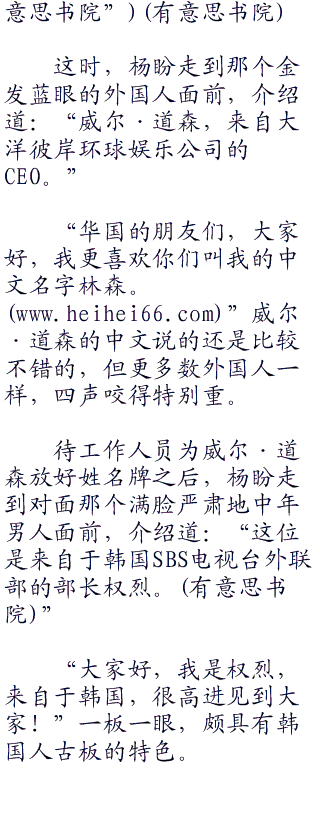 意思书院”)(有意思书院)
这时，杨盼走到那个金
发蓝眼的外国人面前，介绍
道：“威尔·道森，来自大
洋彼岸环球娱乐公司的
CEO。”
“华国的朋友们，大家
好，我更喜欢你们叫我的中
文名字林森。
(www.heihei66.com)”威尔
·道森的中文说的还是比较
不错的，但更多数外国人一
样，四声咬得特别重。
待工作人员为威尔·道
森放好姓名牌之后，杨盼走
到对面那个满脸严肃地中年
男人面前，介绍道：“这位
是来自于韩国SBS电视台外联
部的部长权烈。(有意思书
院)”
“大家好，我是权烈，
来自于韩国，很高进见到大
家！”一板一眼，颇具有韩
国人古板的特色。